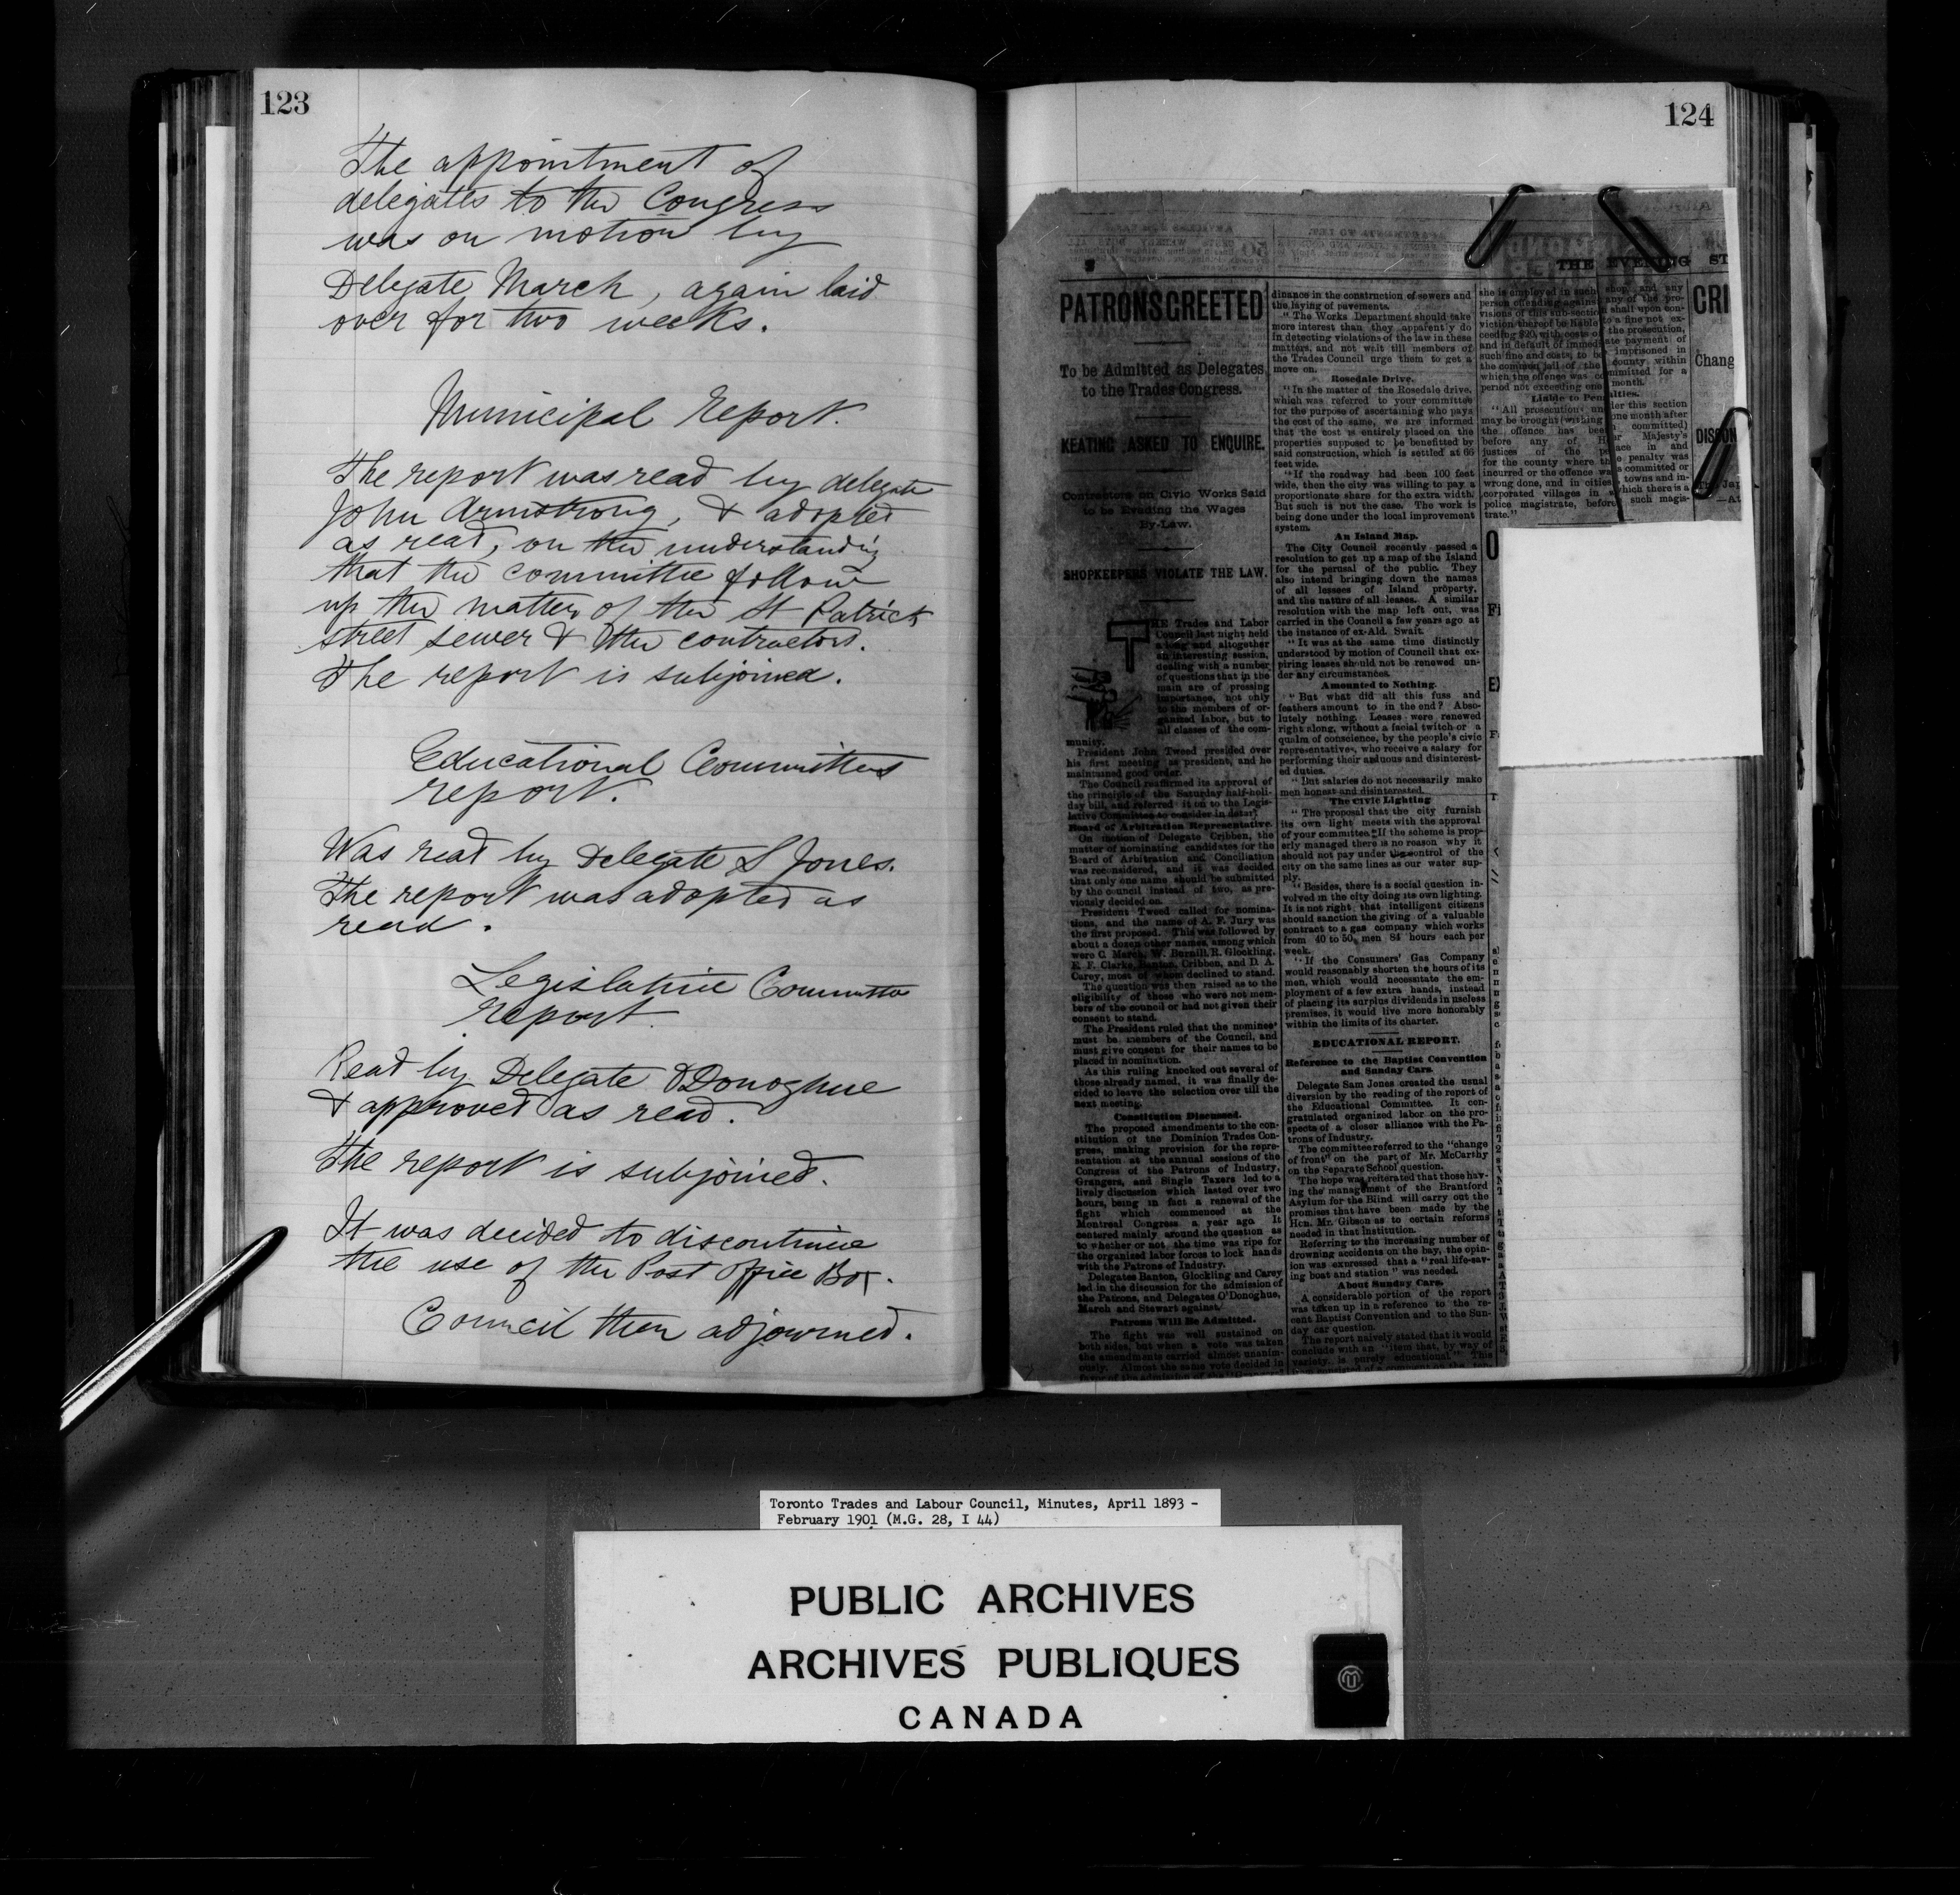 123
The appointment of
delegates to the Congress
was on motion by
Delegate March, again laid
over for two weeks.
Municipal Report.
The report was read by delegate
John Armstrong, & adopted
as read, on the understanding
that the committee follow
up the matter of the St Patrick
street sewer & the contractors.
The report is subjoined.
Educational Committees
report.
Was read by Delegate S Jones.
The report was adopted as
read.
Legislative Committee
Report
Read by Delegate O'Donoghue
& approved as read.
The report is subjoined.
It was decided to discontinue
the use of the Post Office Box.
Council then adjourned.
124
PATRONS GREETED
To be Admitted as Delegates
to the Trades Congress.
KEATING ASKED TO ENQUIRE.
Contractors on Civic Works Said
to be Evading the Wages
By-Law.
SHOPKEEPERS VIOLATE THE LAW.
THE Trades and Labor
Council last night held
a long and altogether
an interesting session,
dealing with a number
of questions that in the
main are of pressing
importance, not only
to the members of or-
ganized labor, but to
all classes of the com-
munity.
President John Tweed presided over
his first meeting as president, and he
maintained good order.
The Council reaffirmed its approval of
the principle of the Saturday half-holi-
day bill, and referred it on to the Legis-
lative Committee to consider in detail.
Board of Arbitration Representative.
On motion of Delegate Cribben, the
matter of nominating candidates for the
Board of Arbitration and Conciliation
was reconsidered, and it was decided
that only one name should be submitted
by the council instead of two, as pre-
viously decided on.
President Tweed called for nomina-
tions, and the name of A. F. Jury was
the first proposed. This was followed by
about a dozen other names, among which
were C. March, W. Burnill, R. Glockling,
E. F. Clarke, Banton, Cribben, and D. A.
Carey, most of whom declined to stand.
The question was then raised as to the
eligibility of those who were not mem-
bers of the council or had not given their
consent to stand.
The President ruled that the nominees
must be members of the Council, and
must give consent for their names to be
placed in nomination.
As this ruling knocked out several of
those already named, it was finally de-
cided to leave the selection over till the
next meeting.
Constitution Discussed.
The proposed amendments to the con-
stitution of the Dominion Trades Con-
gress, making provision for the repre-
sentation at the annual sessions of the
Congress of the Patrons of Industry,
Grangers, and Single Taxers led to a
lively discussion which lasted over two
hours, being in fact a renewal of the
fight which commenced at the
Montreal Congress a year ago. It
centered mainly around the question as
to whether or not the time was ripe for
the organized labor forces to lock hands
with the Patrons of Industry.
Delegates Banton, Glockling and Carey
led in the discussion for the admission of
the Patrons, and Delegates O'Donoghue,
March and Stewart against.
Patrons Will Be Admitted.
The fight was well sustained on
both sides, but when a vote was taken
the amendments carried almost unanim-
ously. Almost the same vote decided in
dinance in the construction of sewers and
the laying of pavements.
"The Works Department should take
more interest than they apparently do
in detecting violations of the law in these
matters, and not wait till members of
the Trades Council urge them to get a
move on.
Rosedale Drive.
"In the matter of the Rosedale drive,
which was referred to your committee
for the purpose of ascertaining who pays
the cost of the same, we are informed
that the cost is entirely placed on the
properties supposed to be benefitted by
said construction, which is settled at 66
feet wide.
"If the roadway had been 100 feet
wide, then the city was willing to pay a
proportionate share for the extra width.
But such is not the case. The work is
being done under the local improvement
system.
An Island Map.
The City Council recently passed a
resolution to get up a map of the Island
for the perusal of the public. They
also intend bringing down the names
of all lessees of Island property,
and the nature of all leases. A similar
resolution with the map left out, was
carried in the Council a few years ago at
the instance of ex-Ald. Swait.
"It was at the same time distinctly
understood by motion of Council that ex-
piring leases should not be renewed un-
der any circumstances.
Amounted to Nothing.
"But what did all this fuss and
feathers amount to in the end? Abso-
lutely nothing. Leases were renewed
right along, without a facial twitch or a
qualm of conscience, by the people's civic
representatives, who receive a salary for
performing their arduous and disinterest-
ed duties.
"But salaries do not necessarily make
men honest and disinterested.
The Civic Lighting
"The proposal that the city furnish
its own light meets with the approval
of your committee. If the scheme is prop-
erly managed there is no reason why it
should not pay under the control of the
city on the same lines as our water sup-
ply.
"Besides, there is a social question in-
volved in the city doing its own lighting.
It is not right that intelligent citizens
should sanction the giving of a valuable
contract to a gas company which works
from 40 to 50 men 84 hours each per
week.
"If the Consumers' Gas Company
would reasonably shorten the hours of its
men, which would necessitate the em-
ployment of a few extra hands, instead
of placing its surplus dividends in useless
premises, it would live more honorably
within the limits of its charter.
EDUCATIONAL REPORT.
Reference to the Baptist Convention
and Sunday Cars.
Delegate Sam Jones created the usual
diversion by the reading of the report of
the Educational Committee. It con-
gratulated organized labor on the pro-
spects of a closer alliance with the Pa-
trons of Industry.
The committee referred to the "change
of front" on the part of Mr. McCarthy
on the Separate School question.
The hope was reiterated that those hav-
ing the management of the Brantford
Asylum for the Blind will carry out the
promises that have been made by the
Hon. Mr. Gibson as to certain reforms
needed in that institution.
Referring to the increasing number of
drowning accidents on the bay, the opin-
ion was expressed that a "real life-sav-
ing boat and station" was needed.
About Sunday Cars.
A considerable portion of the report
was taken up in a reference to the re-
cent Baptist Convention and to the Sun-
day car question.
The report naively stated that it would
conclude with an "item that, by way of
variety, is purely educational." This
THE EVENING ST
she is employed in such shop, and any
person offending against any of the pro-
visions of this sub-section shall upon con-
viction thereof be liable to a fine not ex-
ceeding $20, with costs of the prosecution,
and in default of immediate payment of
such fine and costs, to be imprisoned in
the common jail of the county within
which the offence was committed for a
period not exceeding one month.
Liable to Penalties.
"All prosecutions under this section
may be brought (withing one month after
the offence has been committed)
before any of Her Majesty's
justices of the peace in and
for the county where the penalty was
incurred or the offence was committed or
wrong done, and in cities, towns and in-
corporated villages in which there is a
police magistrate, before such magis-
trate."
CRI
Chang
DISCON
—At
Toronto Trades and Labour Council, Minutes, April 1893 -
February 1901 (M.G. 28, I 44)
PUBLIC ARCHIVES
ARCHIVES PUBLIQUES
CANADA